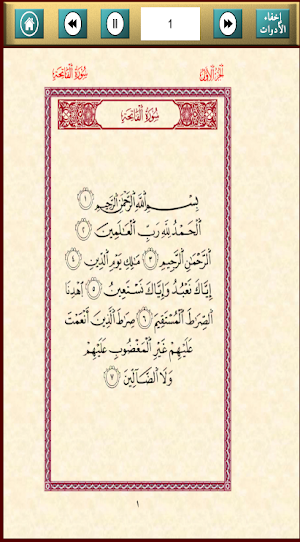 إخفاء
الأدوات
1
سُورَةُ الْفَاتِحَةِ
الجزء الأول
سُورَةُ الْفَاتِحَةِ
بِسْمِ اللَّهِ الرَّحْمَٰنِ الرَّحِيمِ ١
الْحَمْدُ لِلَّهِ رَبِّ الْعَٰلَمِينَ ٢
الرَّحْمَٰنِ الرَّحِيمِ ٣ مَٰلِكِ يَوْمِ الدِّينِ ٤
إِيَّاكَ نَعْبُدُ وَإِيَّاكَ نَسْتَعِينُ ٥ اهْدِنَا
الصِّرَٰطَ الْمُسْتَقِيمَ ٦ صِرَٰطَ الَّذِينَ أَنْعَمْتَ
عَلَيْهِمْ غَيْرِ الْمَغْضُوبِ عَلَيْهِمْ
وَلَا الضَّآلِّينَ ٧
١